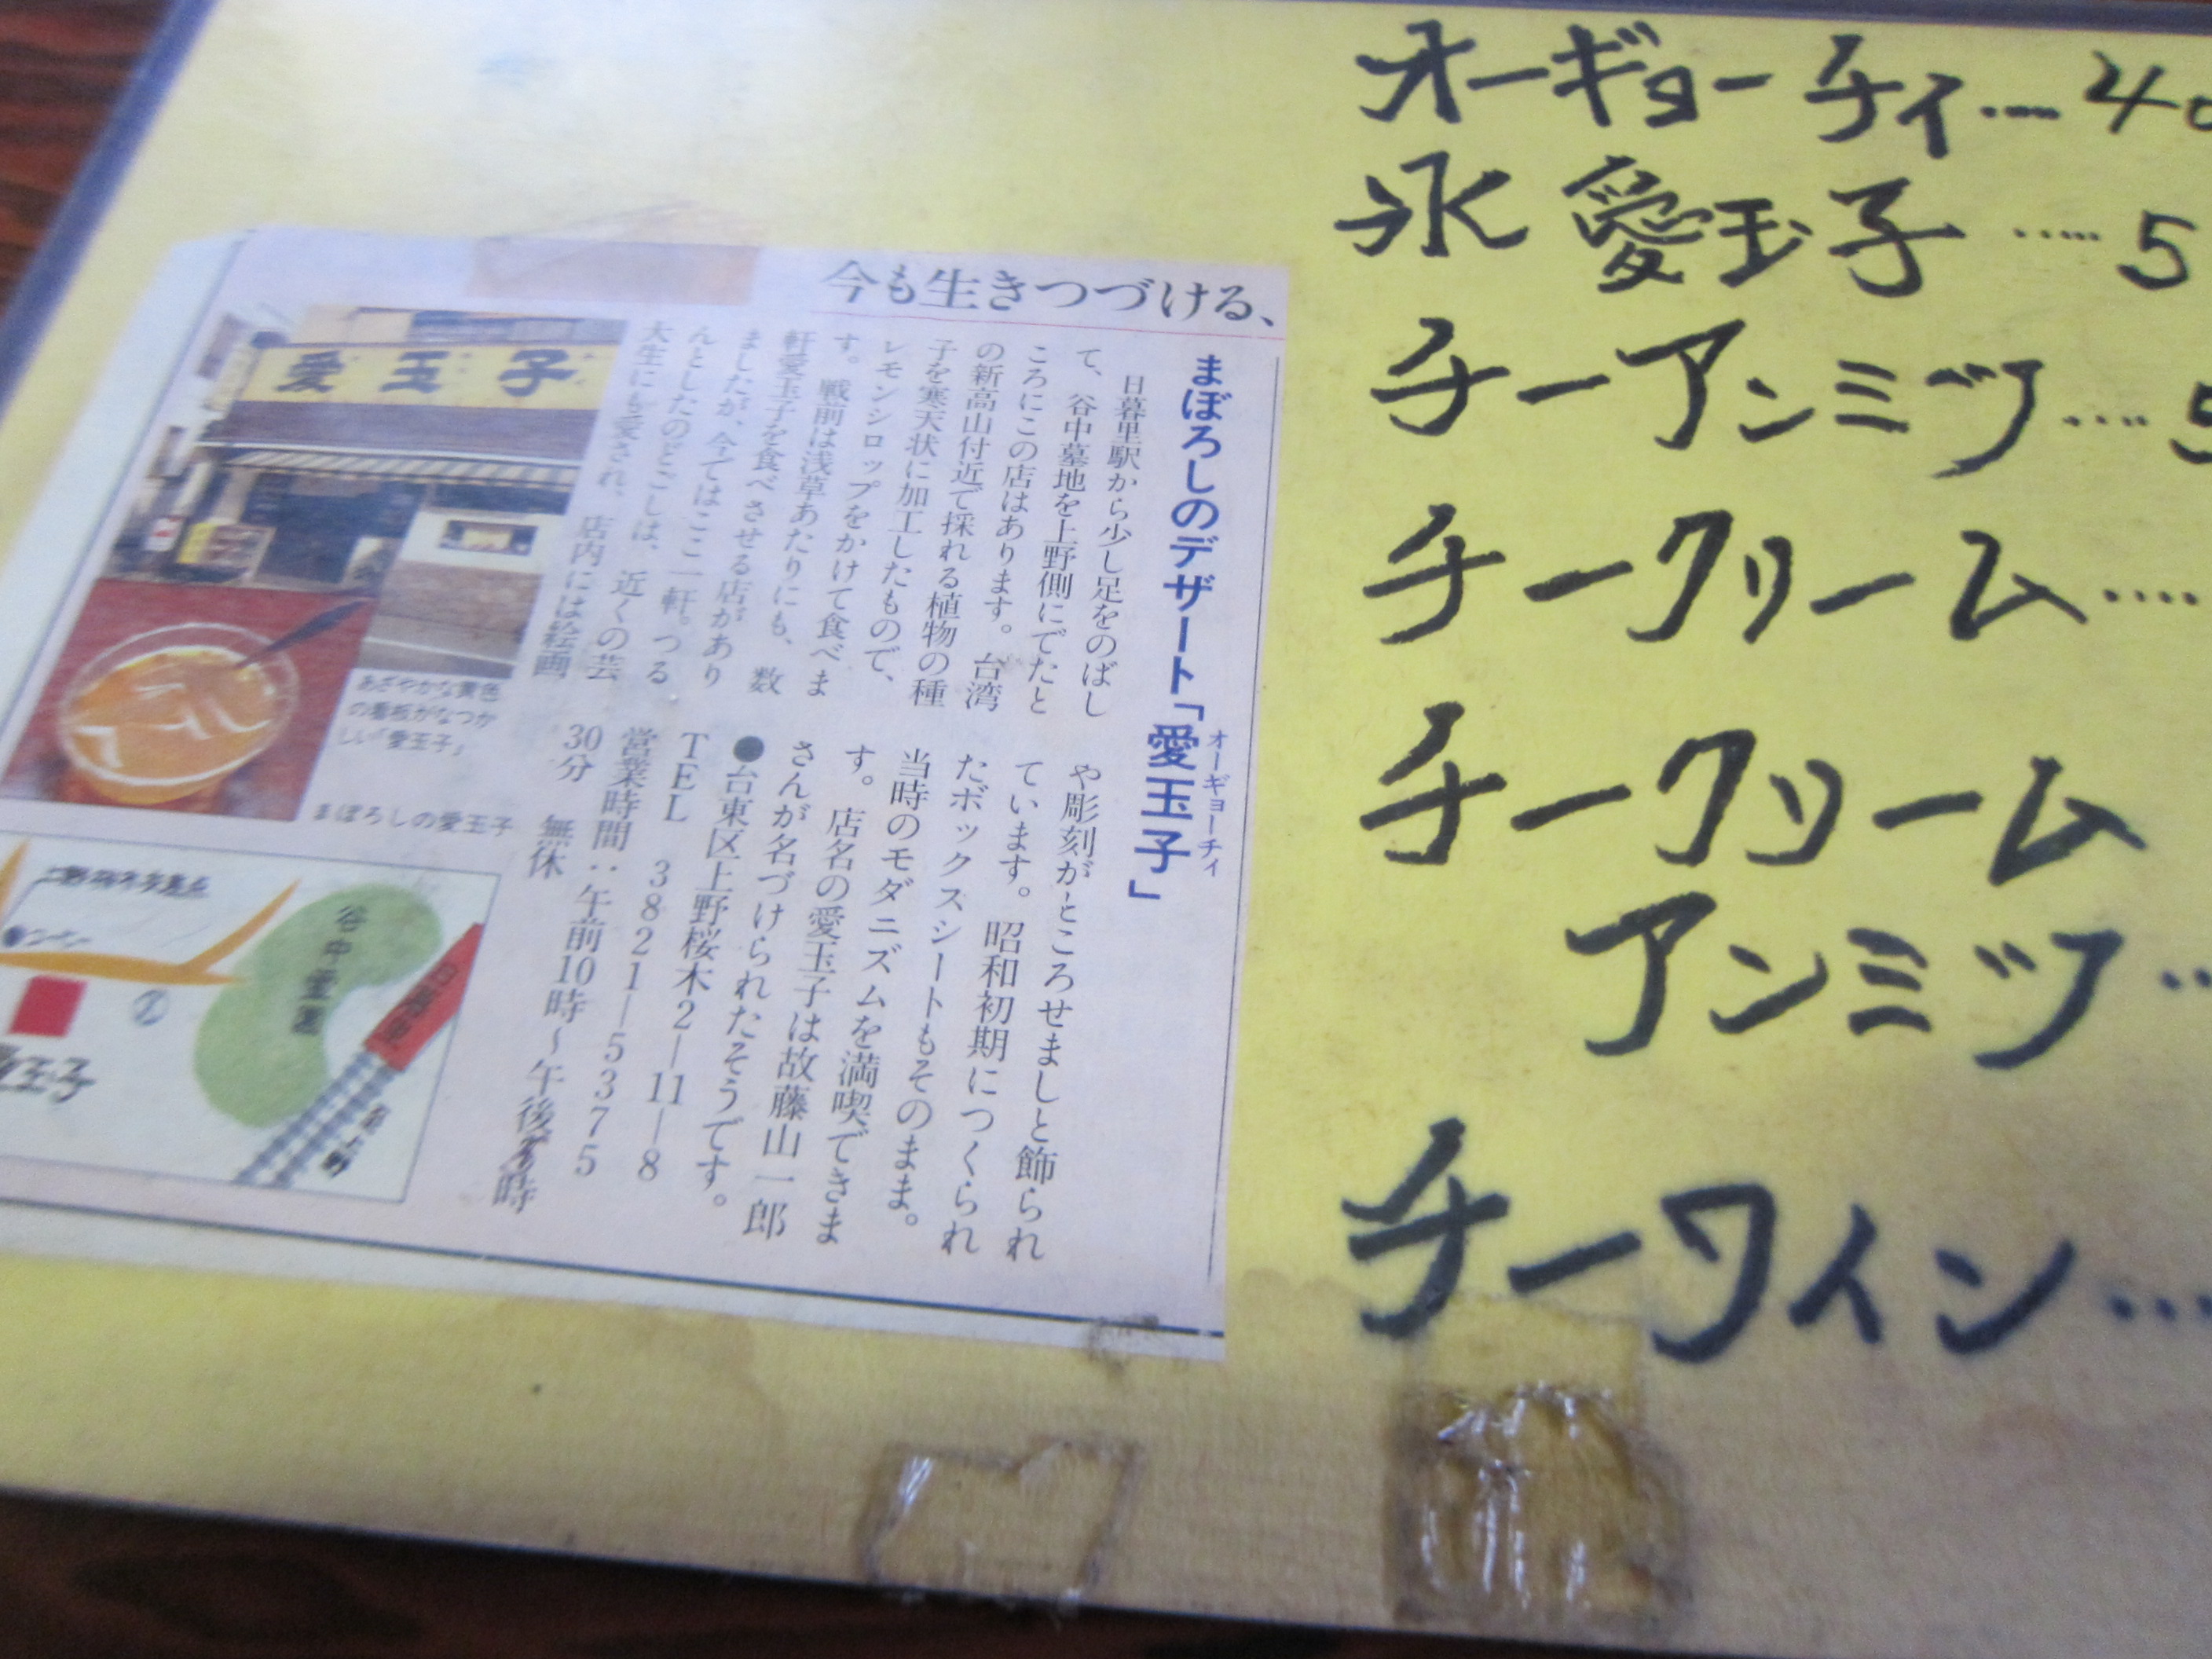 オーギョーチィ…40
氷 愛玉子……5
チーアンミツ……5
チークリーム……
チークリーム
アンミツ…
チーワイン…
今も生きつづける、
まぼろしのデザート「愛玉子」
オーギョーチィ
日暮里駅から少し足をのばし
て、谷中墓地を上野側にでたと
ころにこの店はあります。台湾
の新高山付近で採れる植物の種
子を寒天状に加工したもので、
レモンシロップをかけて食べま
す。戦前は浅草あたりにも、数
軒愛玉子を食べさせる店があり
ましたが、今ではここ一軒。つる
んとしたのどごしは、近くの芸
大生にも愛され、店内には絵画
や彫刻がところせましと飾られ
ています。昭和初期につくられ
たボックスシートもそのまま。
当時のモダニズムを満喫できま
す。店名の愛玉子は故藤山一郎
さんが名づけられたそうです。
●台東区上野桜木2―11―8
TEL 3821―5375
営業時間:午前10時~午後時
30分 無休
愛玉子
あざやかな黄色
の看板がなつか
しい「愛玉子」
まぼろしの愛玉子
谷中霊園
日暮里
玉子